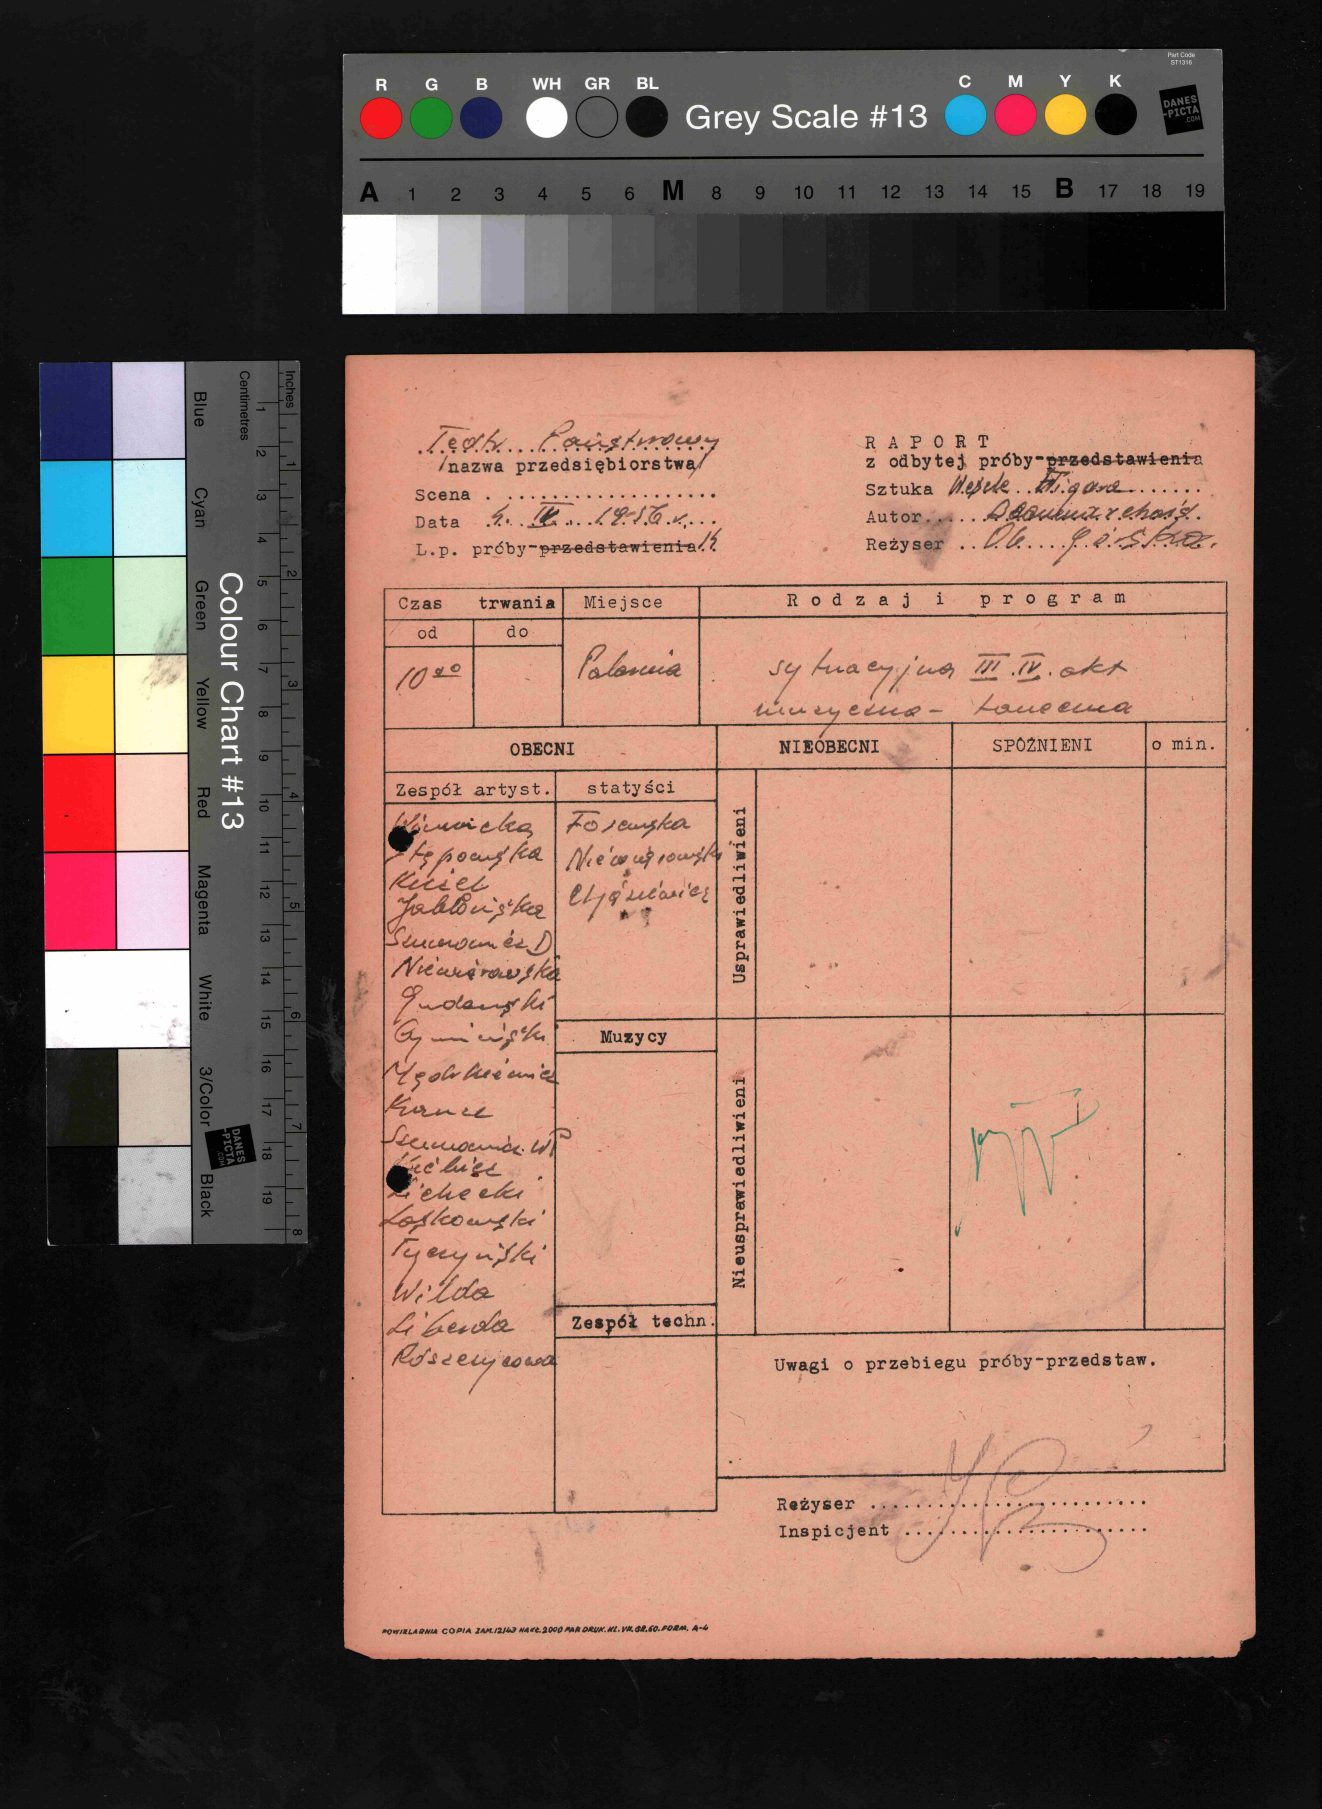 Part Code
ST1316
R G B WH GR BL Grey Scale #13 C M Y K
DANES
-PICTA
.COM
A 1 2 3 4 5 6 M 8 9 10 11 12 13 14 15 B 17 18 19
Colour Chart #13
Blue Cyan Green Yellow Red Magenta White 3/Color Black
Centimetres 1 2 3 4 5 6 7 8 9 10 11 12 13 14 15 16 17 18 19
Inches 1 2 3 4 5 6 7 8
DANES
-PICTA
.COM
Teatr Państwowy
/nazwa przedsiębiorstwa/
Scena
Data 4. IV. 1956 r.
L.p. próby-przedstawienia 14
RAPORT
z odbytej próby-przedstawienia
Sztuka Wesele Figara
Autor Beaumarchais
Reżyser Ob. Górska
Czas trwania Miejsce Rodzaj i program
od do
10 00 Polonia sytuacyjna III. IV. akt
muzyczna - taneczna
OBECNI NIEOBECNI SPÓŹNIENI o min.
Zespół artyst. statyści
Usprawiedliwieni
Stępowska
Kusel
Jabłońska
Szumowicz D
Niewiarowska
Gudański
Mędrkiewicz
Szumowicz W
Cichecki
Laskowski
Tyczyński
Wilda
Liberda
Roszczycowa
Niewiarowski
Muzycy
Nieusprawiedliwieni
Zespół techn.
Uwagi o przebiegu próby-przedstaw.
Reżyser
Inspicjent
POWIELARNIA COPIA ZAM.12143 NAKŁ.2000 PAP.DRUK.KL.VII.GR.60.FORM. A-4